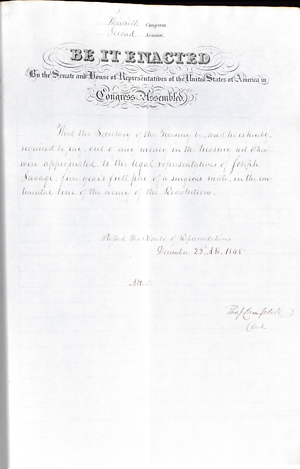 Thirtieth Congress
Second Session
BE IT ENACTED
By the Senate and House of Representatives of the United States of America in
Congress Assembled
That the Secretary of the Treasury be, and he is hereby,
required to pay, out of any money in the Treasury not other
wise appropriated, to the legal representatives of Joseph
Savage, five years full pay of a surgeons mate, in the con
tinental line of the army of the Revolution.
Passed the House of Representatives
December 23d AD. 1848
Attest
Thos J Campbell
Clerk